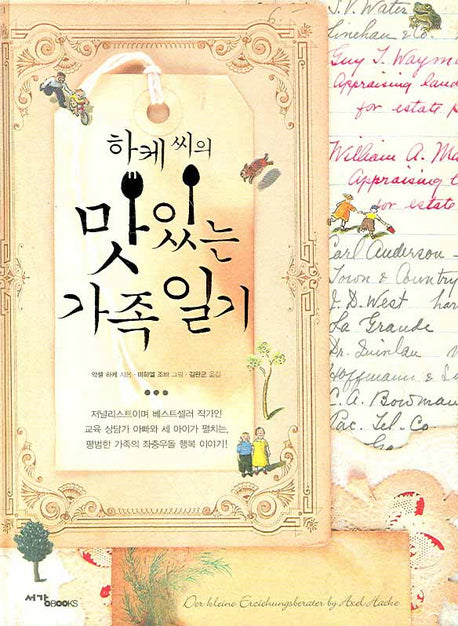 하케 씨의
맛있는
가족 일기
악셀 하케 지음 · 미하엘 조바 그림 · 김완균 옮김
저널리스트이며 베스트셀러 작가인
교육 상담가 아빠와 세 아이가 펼치는,
평범한 가족의 좌충우돌 행복 이야기!
J.V. Water
Linehan & Co.
Guy T. Waym
Appraising land
for estate p
William A. Ma
Appraising
for estate
Carl Anderson -
Town & Country
J. D. West har
La Grande
Dr. Quinlan
Hoffmann &
C. A. Bowman
Pac. Tel. Co.
서가BOOKS
Der kleine Erziehungsberater by Axel Hacke